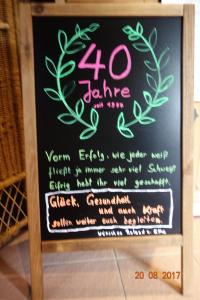 40
Jahre
seit 1977
Vorm Erfolg, wie jeder weiß
fließt ja immer sehr viel Schweiß
Eifrig habt ihr viel geschafft.
Glück, Gesundheit
und auch Kraft
sollen weiter euch begleiten.
wünschen
20 08 2017